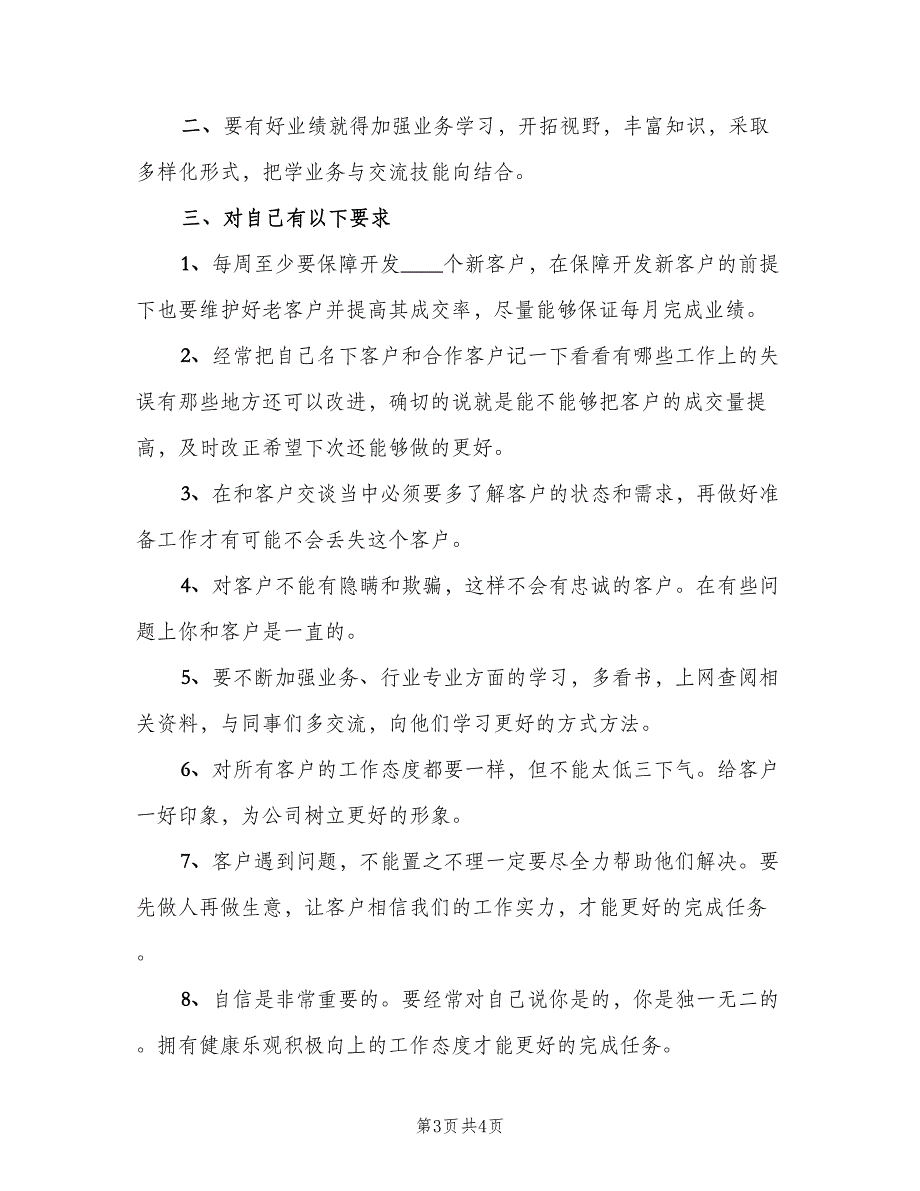 二、要有好业绩就得加强业务学习，开拓视野，丰富知识，采取
多样化形式，把学业务与交流技能向结合。
三、对自己有以下要求
1、每周至少要保障开发____个新客户，在保障开发新客户的前提
下也要维护好老客户并提高其成交率，尽量能够保证每月完成业绩。
2、经常把自己名下客户和合作客户记一下看看有哪些工作上的失
误有那些地方还可以改进，确切的说就是能不能够把客户的成交量提
高，及时改正希望下次还能够做的更好。
3、在和客户交谈当中必须要多了解客户的状态和需求，再做好准
备工作才有可能不会丢失这个客户。
4、对客户不能有隐瞒和欺骗，这样不会有忠诚的客户。在有些问
题上你和客户是一直的。
5、要不断加强业务、行业专业方面的学习，多看书，上网查阅相
关资料，与同事们多交流，向他们学习更好的方式方法。
6、对所有客户的工作态度都要一样，但不能太低三下气。给客户
一好印象，为公司树立更好的形象。
7、客户遇到问题，不能置之不理一定要尽全力帮助他们解决。要
先做人再做生意，让客户相信我们的工作实力，才能更好的完成任务
。
8、自信是非常重要的。要经常对自己说你是的，你是独一无二的
。拥有健康乐观积极向上的工作态度才能更好的完成任务。
第3页共4页